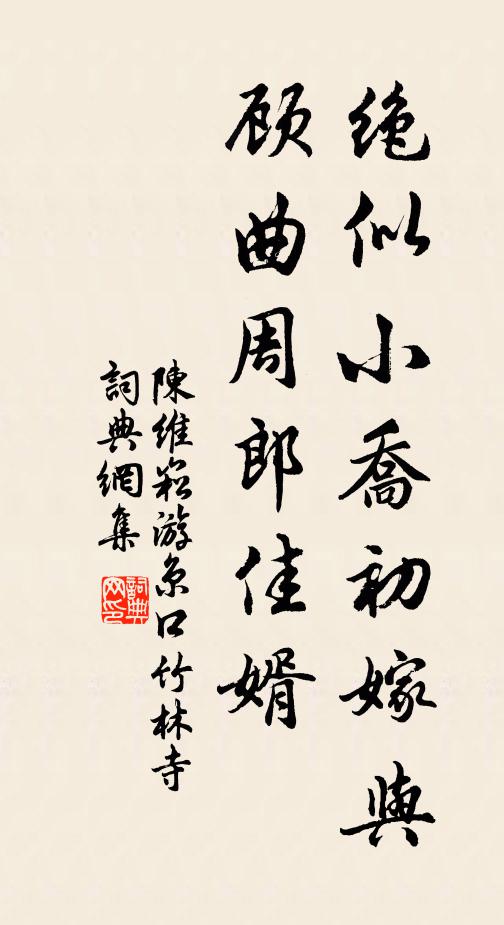 绝似小喬初嫁與
顾曲周郎佳婿
陳維崧游京口竹林寺
詞典網集
詞典
网印